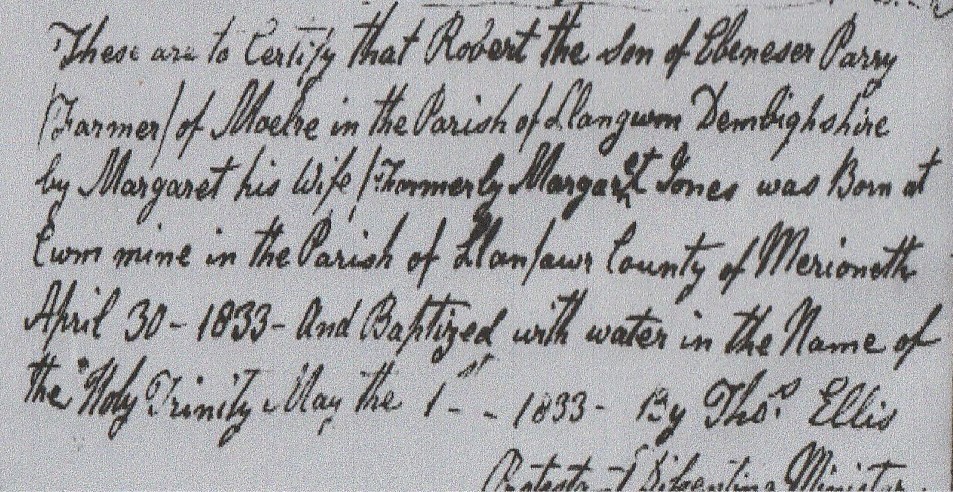 These are to Certify that Robert the Son of Ebeneser Parry
/Farmer/ of Moelre in the Parish of Llangwm Dembighshire
by Margaret his Wife /Formmerly Margaret Jones was Born at
Cwm mine in the Parish of Llanfawr County of Merioneth
April 30 - 1833 - And Baptized with water in the Name of
the Holy Trinity May the 1st - - 1833 - By Thos. Ellis
Protestant Dissenting Minister.